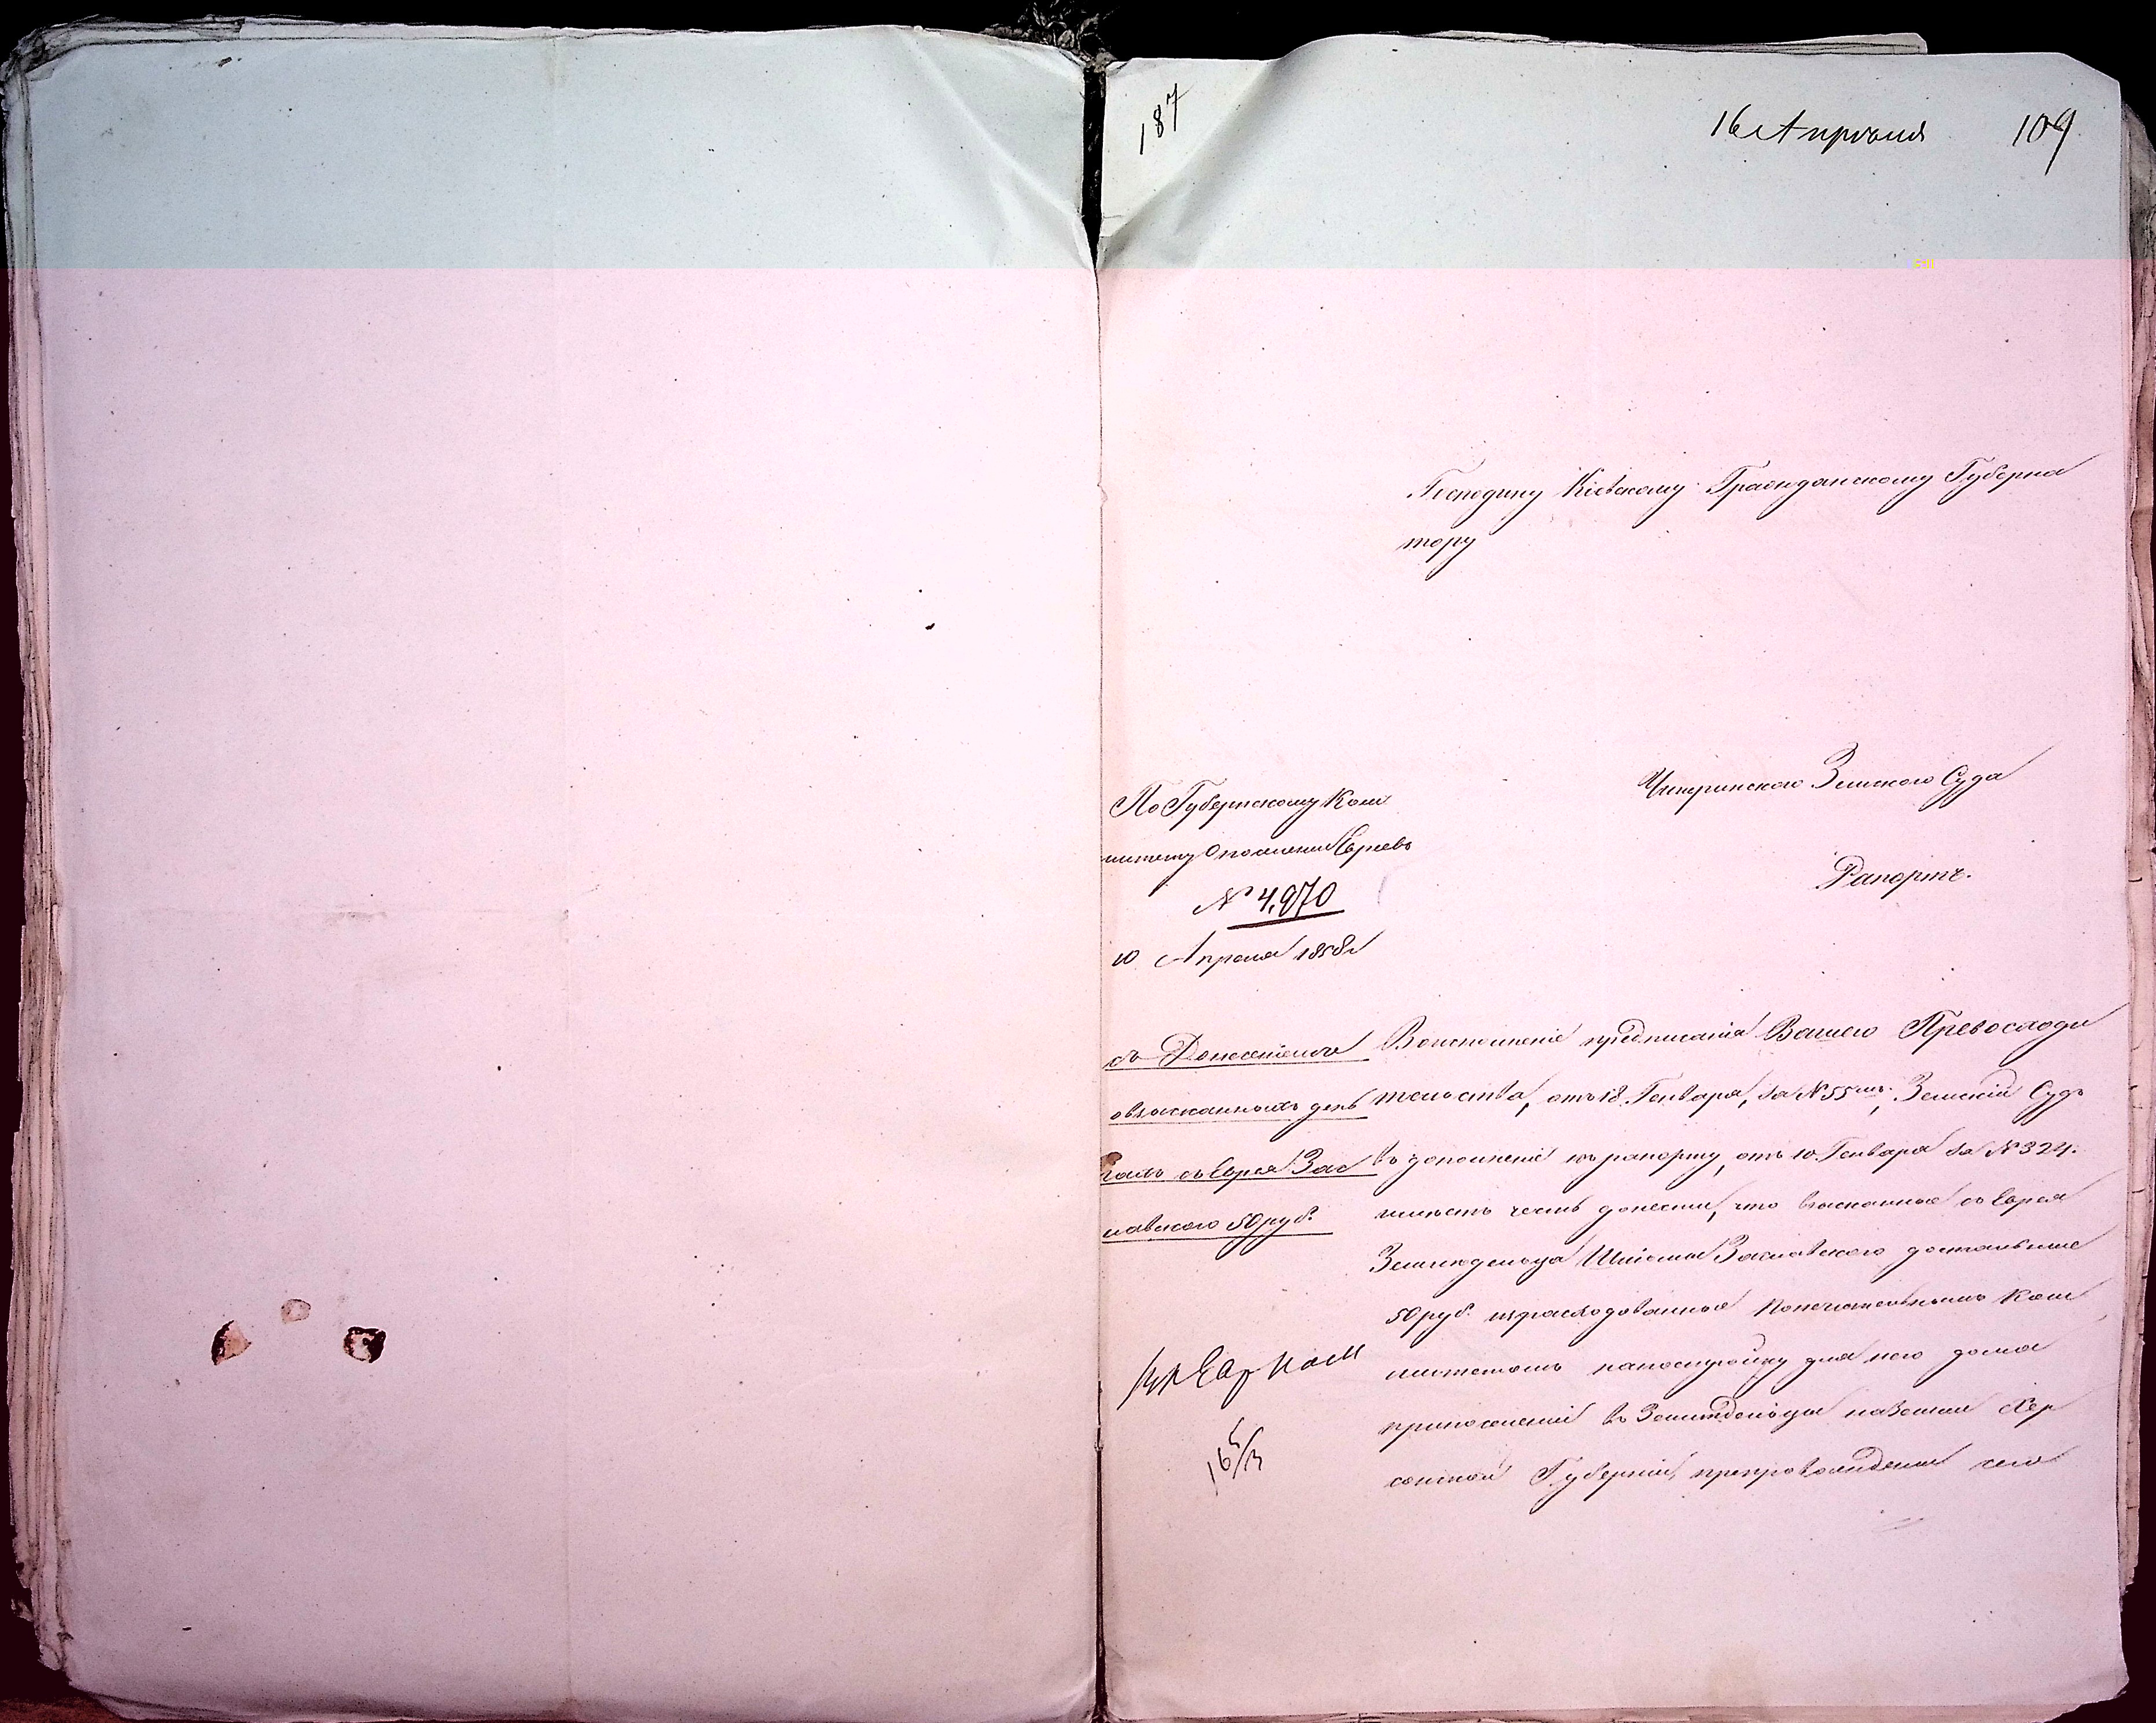 187
16 Апрѣля 109
Господину Кіевскому Гражданскому Губерна
тору
Чигиринскаго Земскаго Суда
Рапортъ.
По Губернскому Ком
митету О поселеніи Евреевъ
№ 4,970
10 Апреля 1858 г
съ Донесеніемъ
о взысканныхъ день
гахъ съ Еврея Зас
лавскаго 50 руб.
Во исполненіе предписанія Вашего Превосходи
тельства, отъ 18 Генваря, за № 55мъ, Земскій Судъ
въ дополненіе къ рапорту, отъ 10 Генваря за № 324.
имѣетъ честь донести, что взысканные съ Еврея
Земледельца Шліомы Заславскаго достальные
50 руб. израсходованные Попечительнымъ Ком
митетомъ на постройку для него дома
при поселеніи въ Земледельцы на земли Хер
сонской Губерніи, препровождены сего
Евр Ком